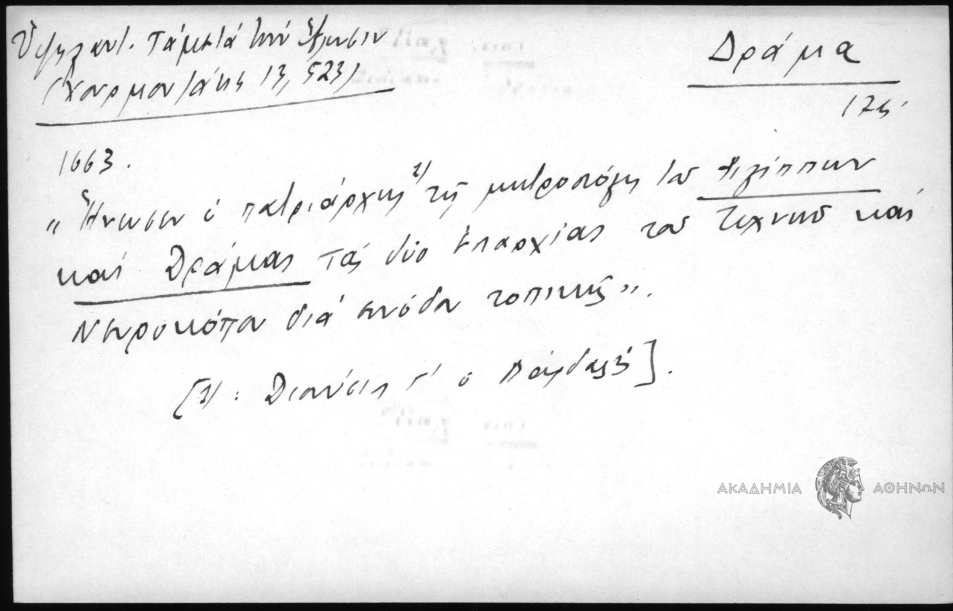 Ὑψηλαντ. Τὰ μετὰ τὴν Ἅλωσιν
(Κουρμουλάκης 13, 523)
Δράμα
176.
1663.
„ Ἥνωσεν ὁ πατριάρχης 1) τῇ μητροπόλει τοῦ Φιλίππων
καὶ Δράμας τὰς δύο ἐπαρχίας τοῦ καὶ
Νευροκόπου διὰ συνόδου τοπικῆς”.
[1) : Διονύσιος Γ' ὁ Βάρδαλις].
ΑΚΑΔΗΜΙΑ ΑΘΗΝΩΝ